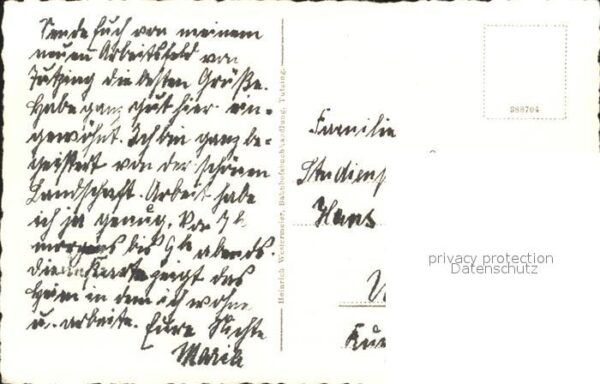 Sende Euch von meinem
neuen Arbeitsfeld von
Tutzing die besten Grüße.
Habe ganz gut hier ein-
gewöhnt. Ich bin ganz be-
geistert von der schönen
Landschaft. Arbeit habe
ich ja genug. Von 7 h
morgens bis 9 h abends.
Die Karte zeigt das
Heim in dem ich wohne
u. arbeite. Eure Nichte
Maria
Heinrich Westermeier, Bahnhofbuchhandlung, Tutzing.
S88704
Familie
Studien
Hans
privacy protection
Datenschutz